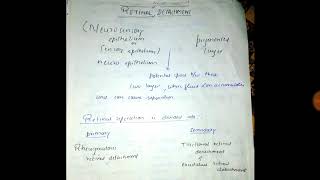 RETINAL DETACHMENT
(Neurosensory pigmented
epithelium layer
or
(sensory epithelium)
neuro epithelium
Potential space b/w these
two layer, when fluid accumulates
and can cause separation
Retinal separation is divided into
primary Secondary
Rhegmatous Tractional retinal
retinal detachment detachment
&
Exudative retinal
detachment